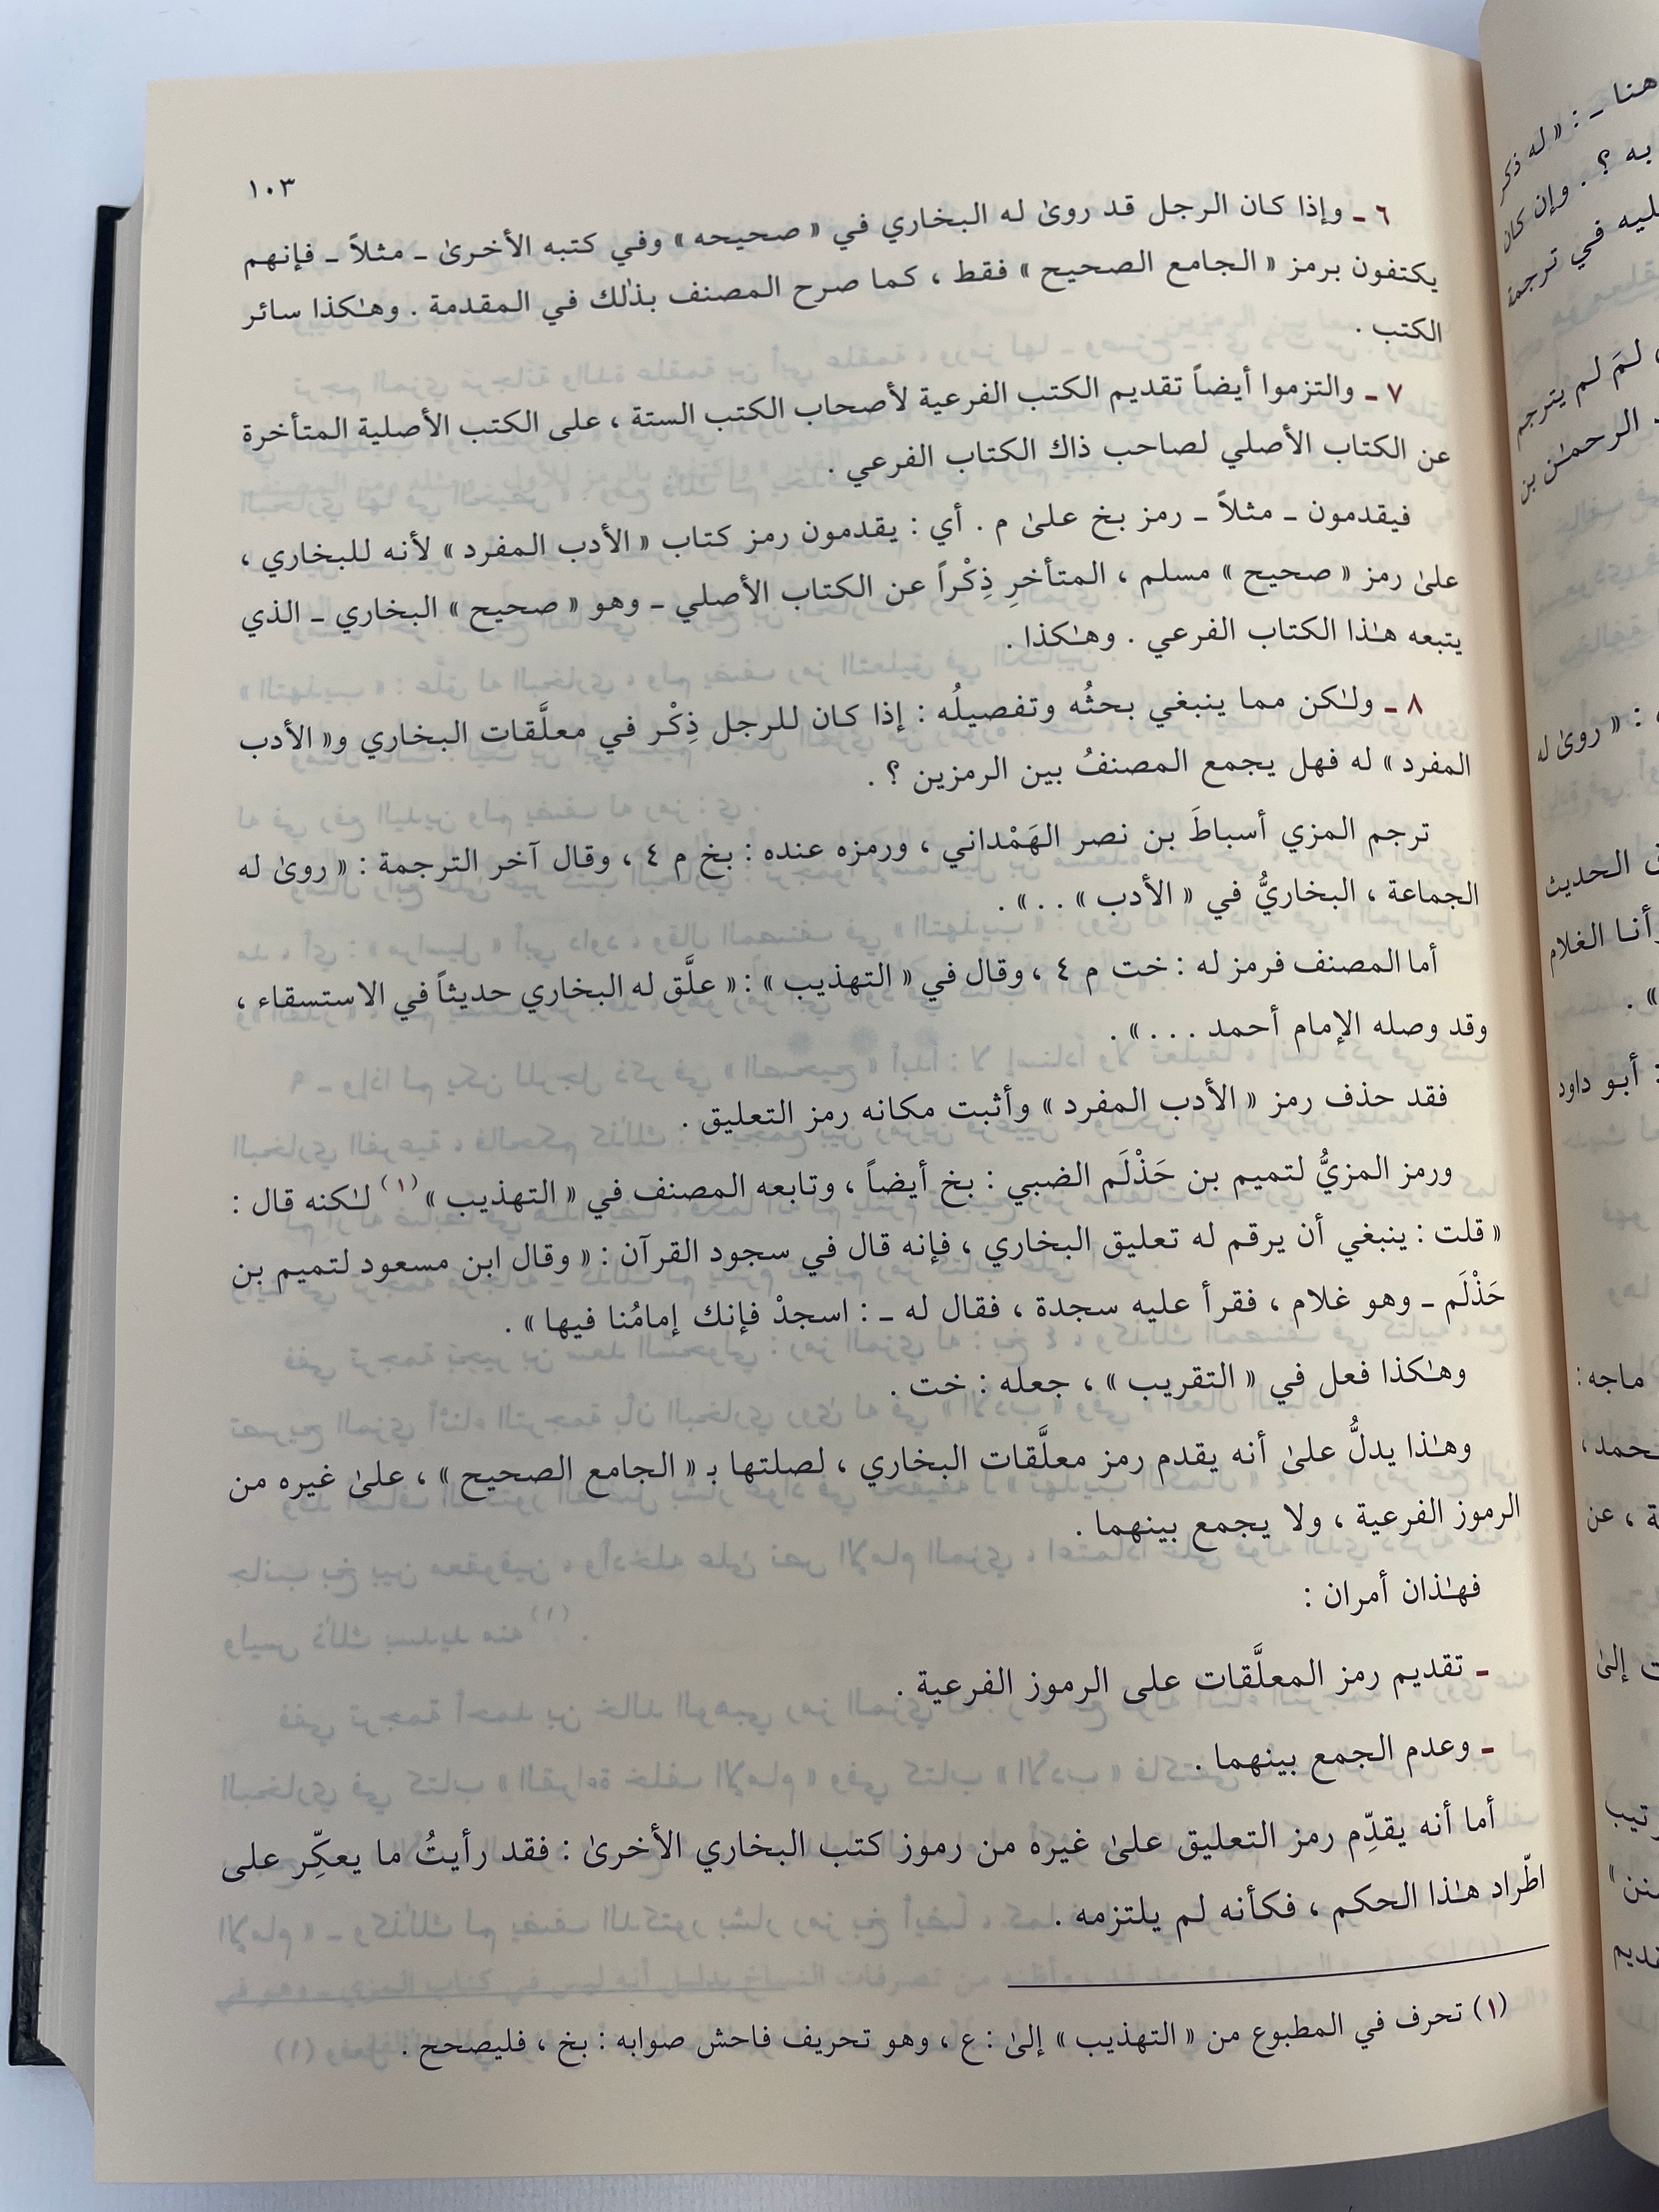 ١٠٣
٦ ـ وإذا كان الرجل قد روىٰ له البخاري في « صحيحه » وفي كتبه الأخرىٰ ـ مثلاً ـ فإنهم
يكتفون برمز « الجامع الصحيح » فقط ، كما صرح المصنف بذٰلك في المقدمة . وهٰكذا سائر
الكتب .
٧ ـ والتزموا أيضاً تقديم الكتب الفرعية لأصحاب الكتب الستة ، على الكتب الأصلية المتأخرة
عن الكتاب الأصلي لصاحب ذاك الكتاب الفرعي .
فيقدمون ـ مثلاً ـ رمز بخ علىٰ م . أي : يقدمون رمز كتاب « الأدب المفرد » لأنه للبخاري ،
علىٰ رمز « صحيح » مسلم ، المتأخرِ ذِكْراً عن الكتاب الأصلي ـ وهو « صحيح » البخاري ـ الذي
يتبعه هٰذا الكتاب الفرعي . وهٰكذا .
٨ ـ ولٰكن مما ينبغي بحثُه وتفصيلُه : إذا كان للرجل ذِكْر في معلَّقات البخاري و« الأدب
المفرد » له فهل يجمع المصنفُ بين الرمزين ؟ .
ترجم المزي أسباطَ بن نصر الهَمْداني ، ورمزه عنده : بخ م ٤ ، وقال آخر الترجمة : « روىٰ له
الجماعة ، البخاريُّ في « الأدب » . . » .
أما المصنف فرمز له : خت م ٤ ، وقال في « التهذيب » : « علَّق له البخاري حديثاً في الاستسقاء ،
وقد وصله الإمام أحمد . . . » .
فقد حذف رمز « الأدب المفرد » وأثبت مكانه رمز التعليق .
ورمز المزيُّ لتميم بن حَذْلَم الضبي : بخ أيضاً ، وتابعه المصنف في « التهذيب » (١) لٰكنه قال :
« قلت : ينبغي أن يرقم له تعليق البخاري ، فإنه قال في سجود القرآن : « وقال ابن مسعود لتميم بن
حَذْلَم ـ وهو غلام ، فقرأ عليه سجدة ، فقال له ـ : اسجدْ فإنك إمامُنا فيها » .
وهٰكذا فعل في « التقريب » ، جعله : خت .
وهٰذا يدلُّ علىٰ أنه يقدم رمز معلَّقات البخاري ، لصلتها بـ « الجامع الصحيح » ، علىٰ غيره من
الرموز الفرعية ، ولا يجمع بينهما .
فهٰذان أمران :
ـ تقديم رمز المعلَّقات على الرموز الفرعية .
ـ وعدم الجمع بينهما .
أما أنه يقدِّم رمز التعليق علىٰ غيره من رموز كتب البخاري الأخرىٰ : فقد رأيتُ ما يعكِّر على
اطّراد هٰذا الحكم ، فكأنه لم يلتزمه .
(١) تحرف في المطبوع من « التهذيب » إلىٰ : ع ، وهو تحريف فاحش صوابه : بخ ، فليصحح .
هنا ـ : « له ذكر
به ؟ . وإن كان
عليه في ترجمة
لمَ لم يترجم
الرحمٰن بن
: « روىٰ له
الحديث
أنا الغلام
» .
: أبو داود
ماجه :
، عن
إلىٰ